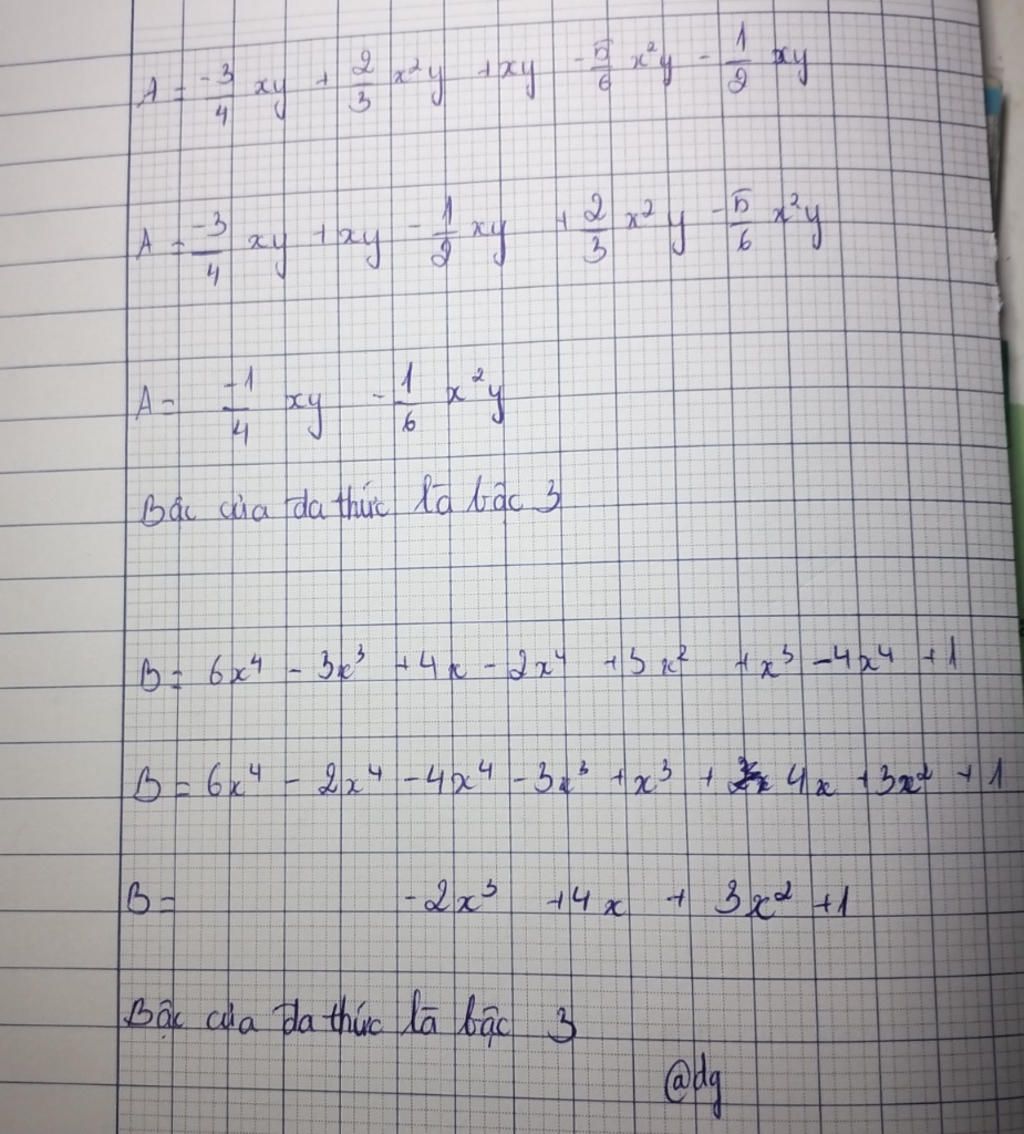 A = -3/4 xy + 2/3 x²y + xy - 5/6 x²y - 1/2 xy
A = -3/4 xy + xy - 1/2 xy + 2/3 x²y - 5/6 x²y
A = -1/4 xy - 1/6 x²y
Bậc của đa thức là bậc 3
B = 6x⁴ - 3x³ + 4x - 2x⁴ + 3x² + x³ - 4x⁴ + 1
B = 6x⁴ - 2x⁴ - 4x⁴ - 3x³ + x³ + 4x + 3x² + 1
B = -2x³ + 4x + 3x² + 1
Bậc của đa thức là bậc 3
@dg